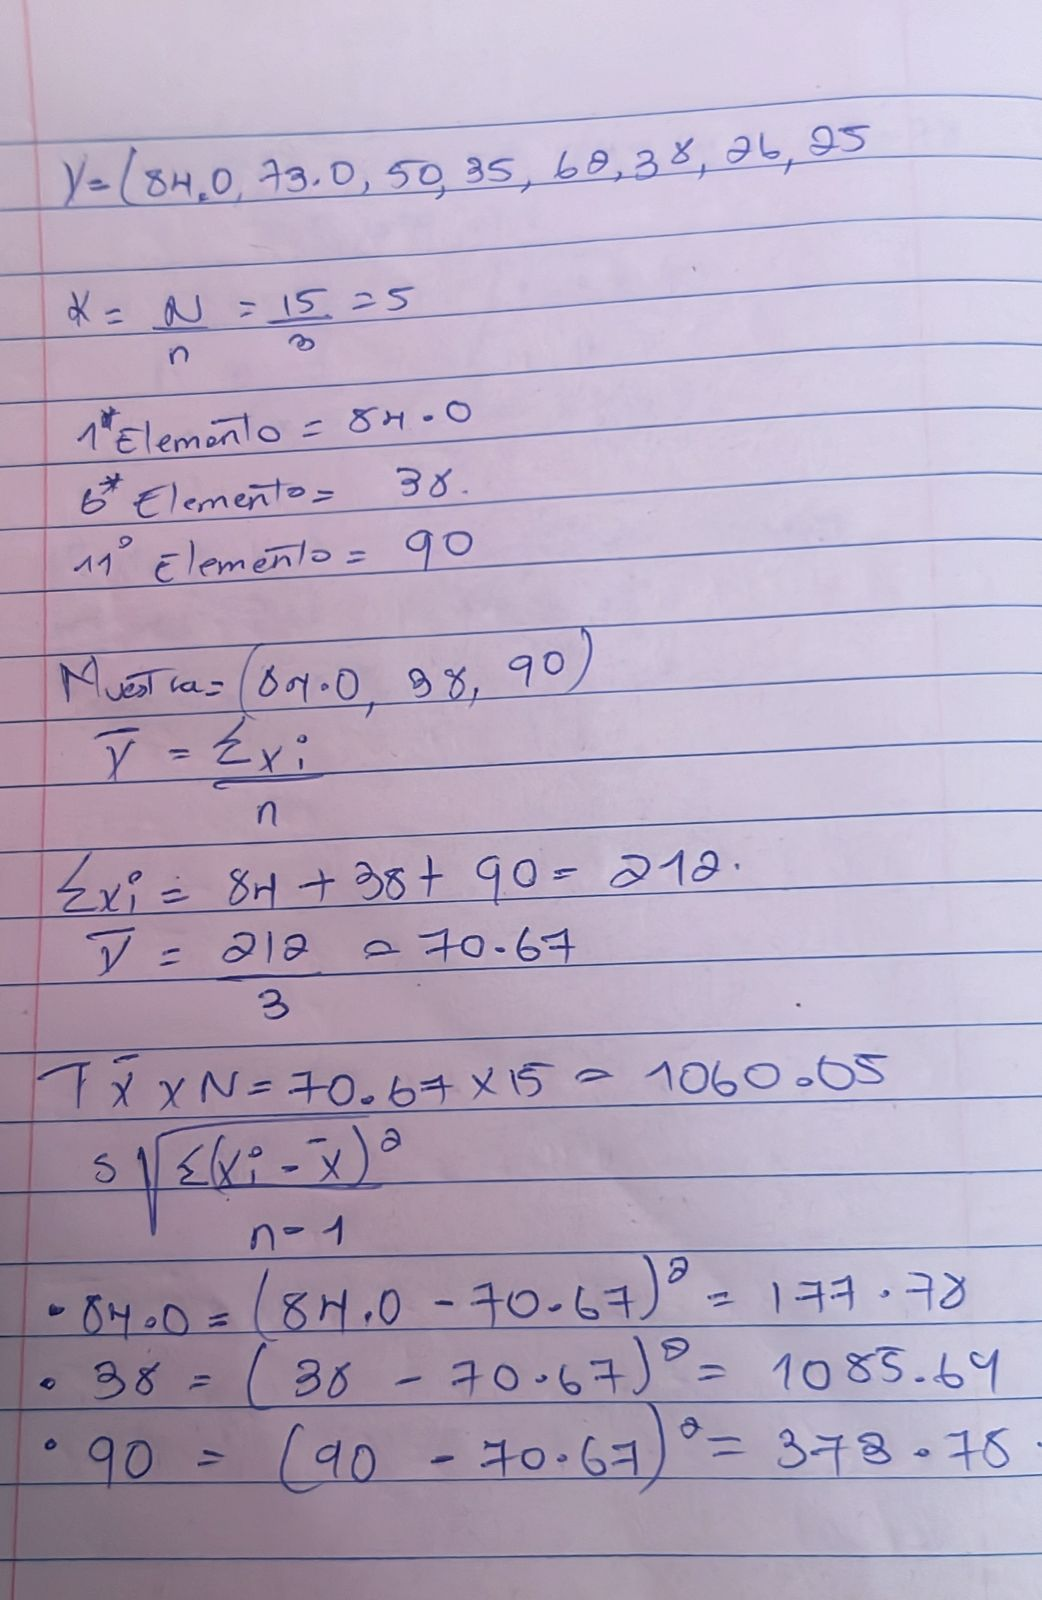 Y=(84.0, 73.0, 50, 35, 62, 38, 26, 25
K = N/n = 15/3 = 5
1* Elemento = 84.0
6* Elemento = 38.
11° Elemento = 90
Muestra = (84.0, 38, 90)
Y̅ = Σxi/n
Σxi = 84 + 38 + 90 = 212.
Y̅ = 212/3 = 70.67
T x̄ x N = 70.67 x 15 = 1060.05
s √Σ(xi - x̄)²/n-1
• 84.0 = (84.0 - 70.67)² = 177.78
• 38 = (38 - 70.67)² = 1085.64
• 90 = (90 - 70.67)² = 373.78.